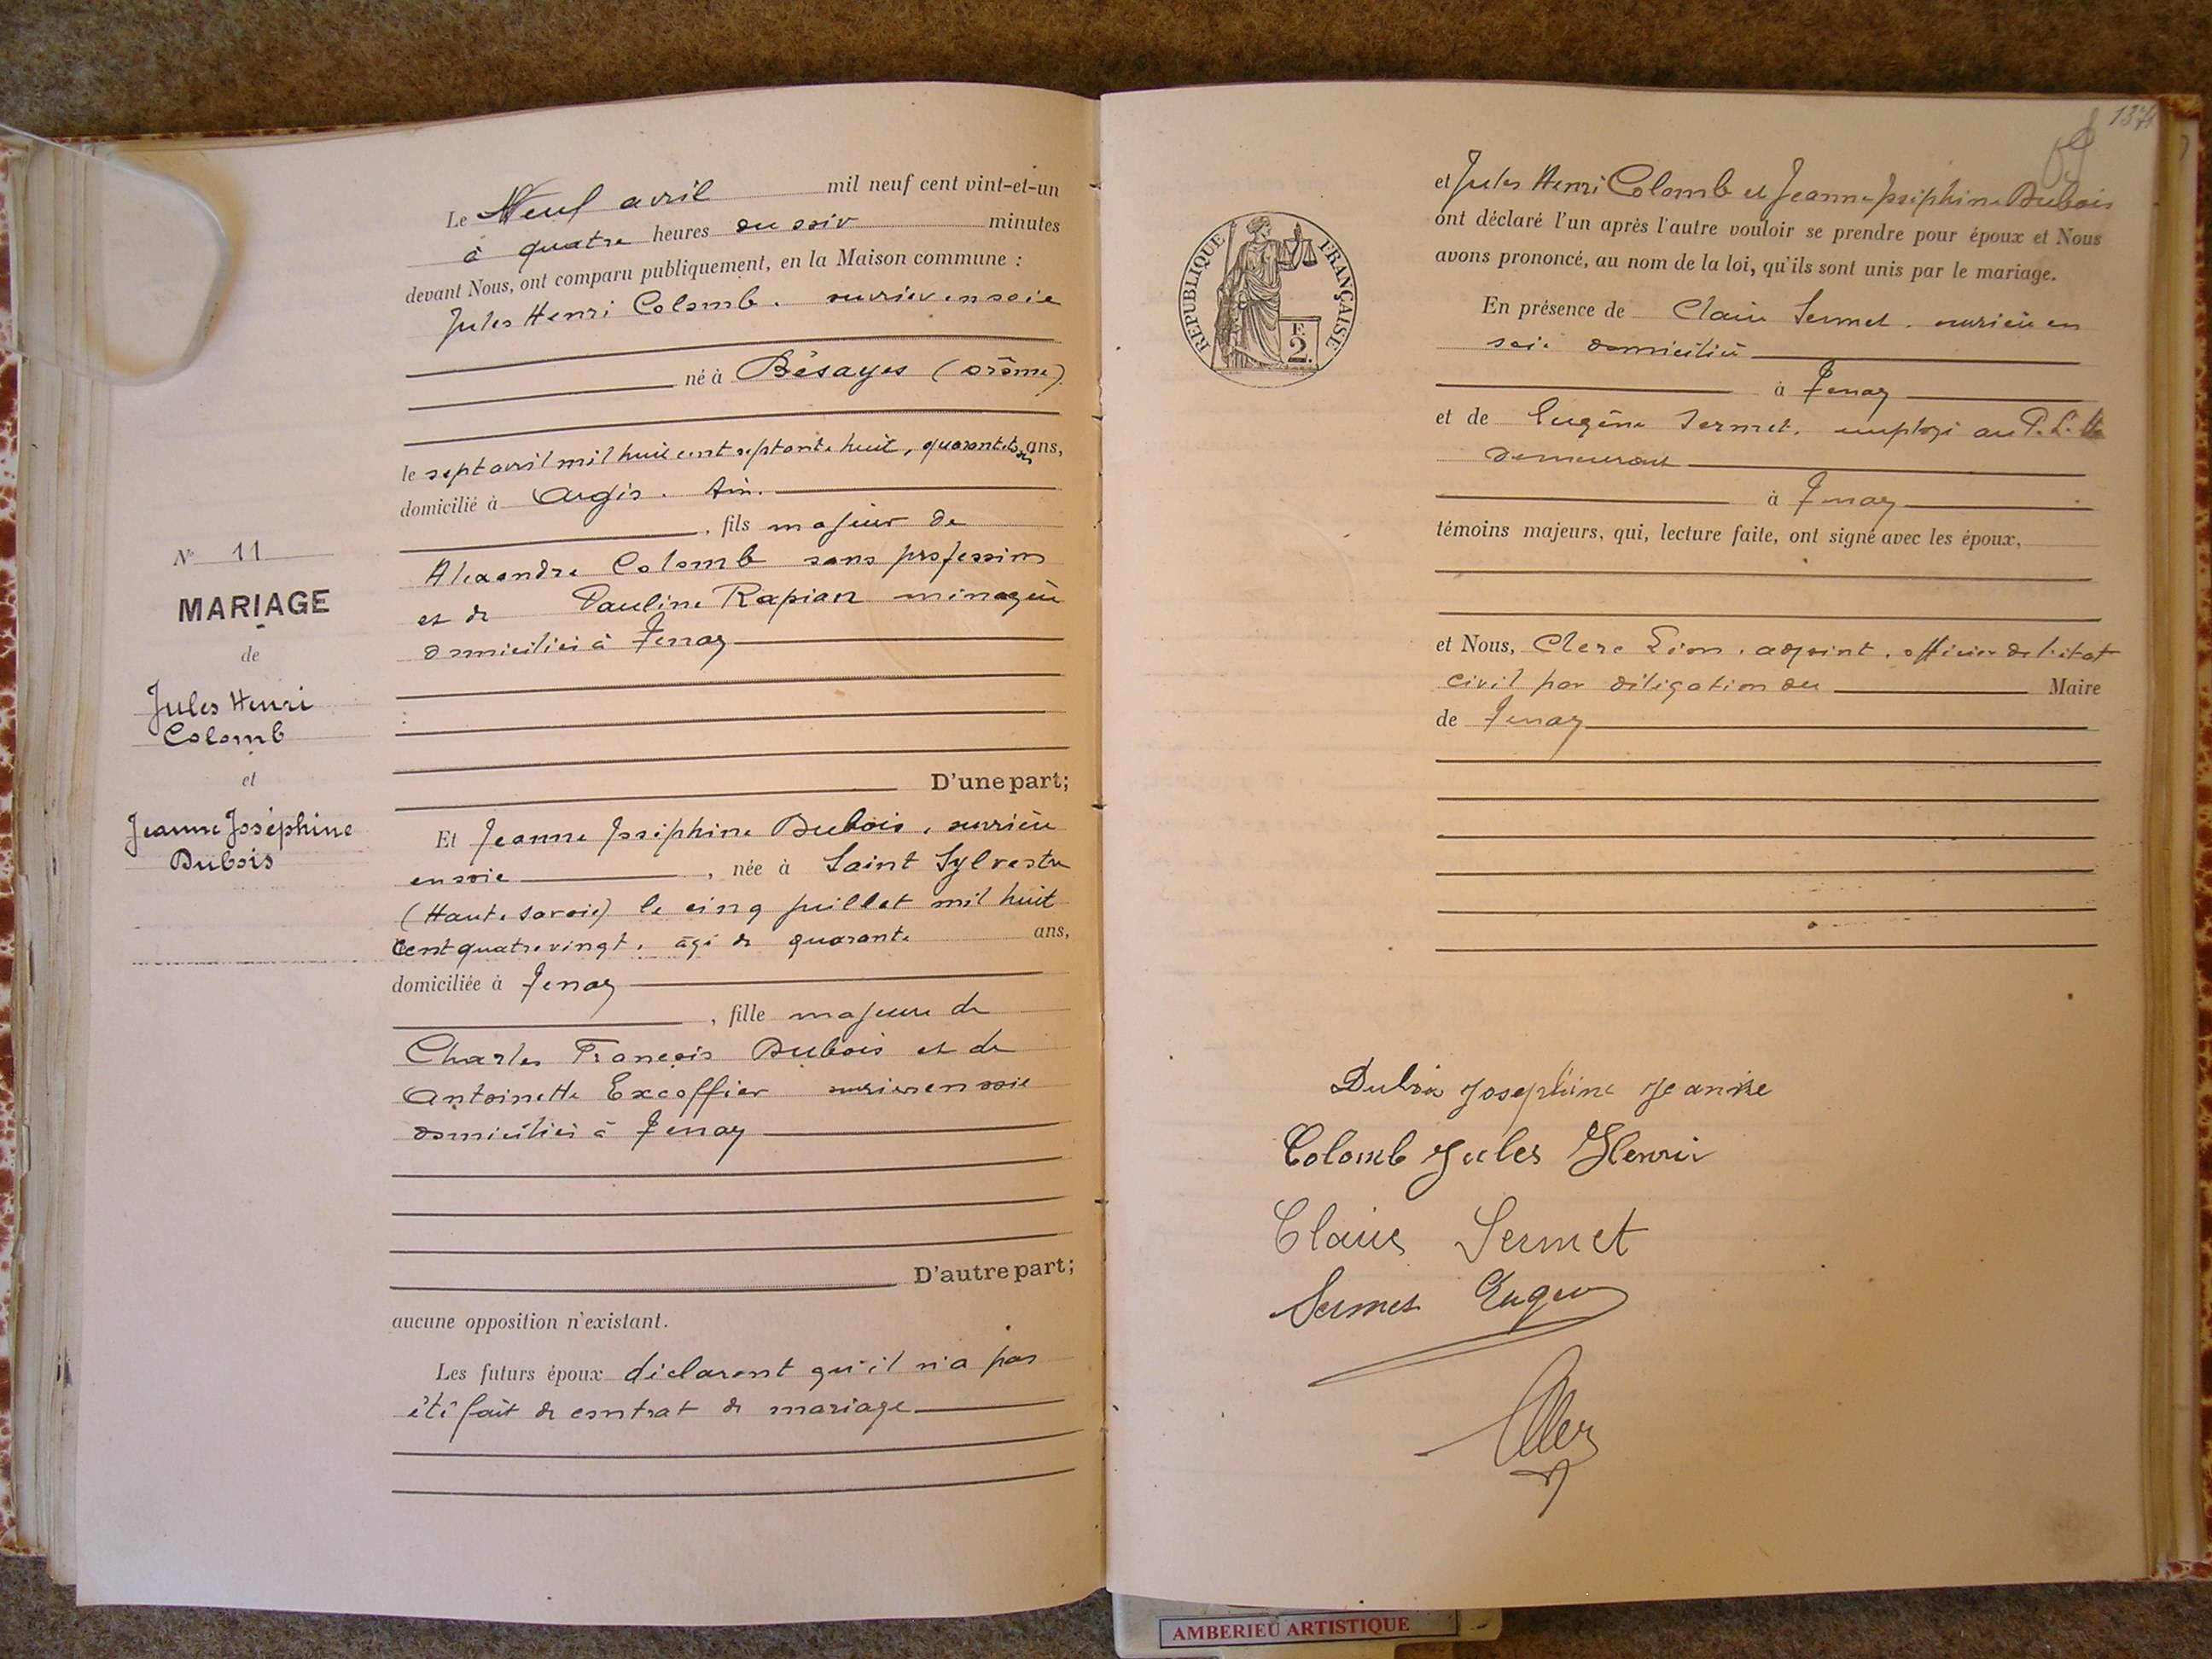 N° 11
MARIAGE
de
Jules Henri
Colomb
et
Jeanne Joséphine
Dubois
Le Neuf avril mil neuf cent vint-et-un
à quatre heures du soir minutes
devant Nous, ont comparu publiquement, en la Maison commune :
Jules Henri Colomb. ouvrier en soie
né à Bésayes (Drôme)
le sept avril mil huit cent septante huit, quarante ans,
domicilié à Argis. Ain.
, fils majeur de
Alexandre Colomb sans profession
et de Pauline Rapian ménagère
domiciliés à Tenay
D'une part;
Et Jeanne Joséphine Dubois, ouvrière
en soie , née à Saint Sylvestre
(Haute Savoie) le cinq juillet mil huit
cent quatre vingt, âgé de quarante ans,
domiciliée à Tenay
, fille majeure de
Charles François Dubois et de
Antoinette Excoffier ouvriers en soie
domiciliés à Tenay
D'autre part;
aucune opposition n'existant.
Les futurs époux déclarent qu'il n'a pas
été fait de contrat de mariage
137
RÉPUBLIQUE FRANÇAISE
F.
2.
et Jules Henri Colomb et Jeanne Joséphine Dubois
ont déclaré l'un après l'autre vouloir se prendre pour époux et Nous
avons prononcé, au nom de la loi, qu'ils sont unis par le mariage.
En présence de Claire Sermet. ouvrière en
soie domiciliée
à Tenay
et de Eugène Sermet. employé au P. L. M.
demeurant
à Tenay
témoins majeurs, qui, lecture faite, ont signé avec les époux,
et Nous, Clerc Léon. adjoint. officier de l'état
civil par délégation du Maire
de Tenay
Dubois Josephine Jeanne
Colomb Jules Henri
Claire Sermet
Sermet Eugène
AMBERIEU ARTISTIQUE